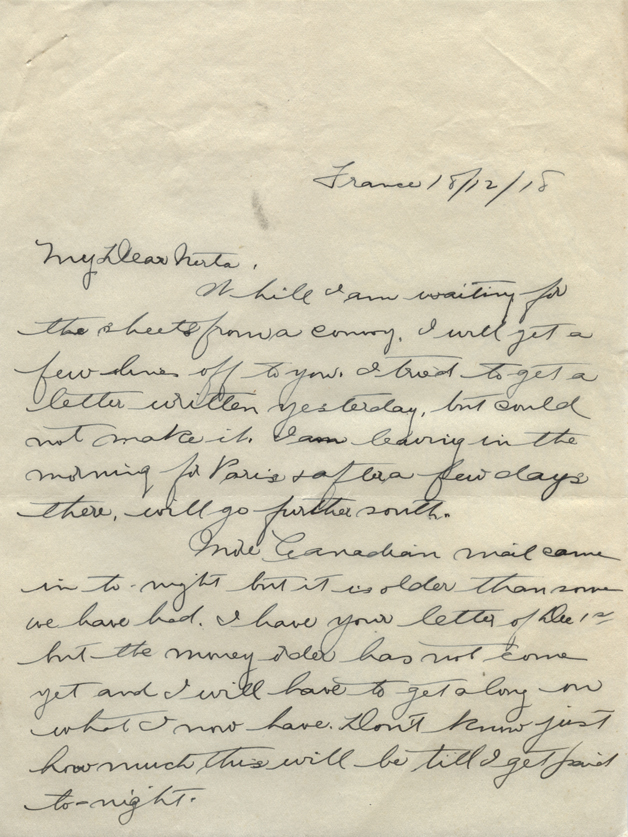 France 18/12/18
My Dear Nerta,
Whill I am waiting for
the sheets from a convoy, I will get a
few lines off to you. I tried to get a
letter written yesterday, but could
not make it. I am leaving in the
morning for Paris & after a few days
there, will go further south.
More Canadian mail came
in to-night but it is older than some
we have had. I have your letter of Dec 1st
but the money order has not come
yet and I will have to get along on
what I now have. Don't know just
how much this will be till I get paid
to-night.